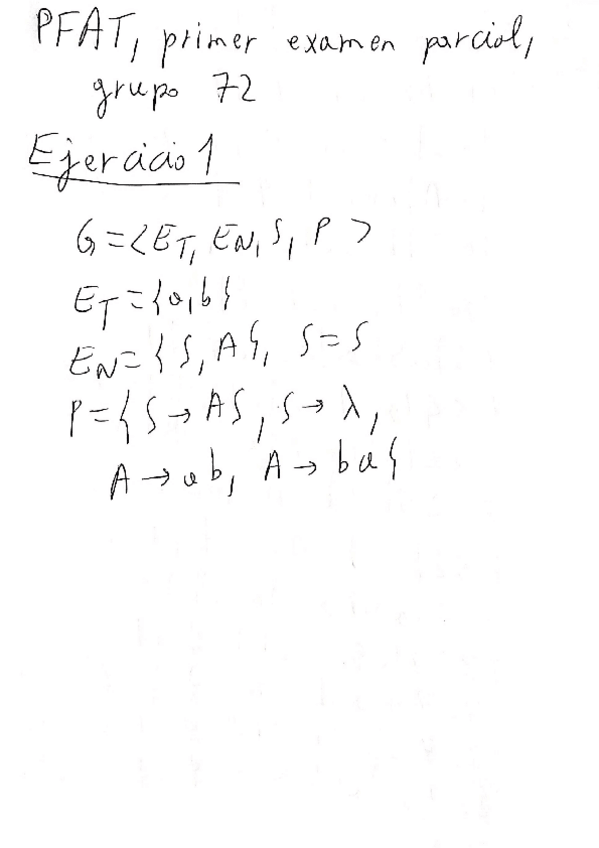 PFAT, primer examen parcial,
grupo 72
Ejercicio 1
G = < E_T, E_N, S, P >
E_T = {a, b}
E_N = {S, A}, S = S
P = {S → AS, S → λ,
A → ab, A → ba}